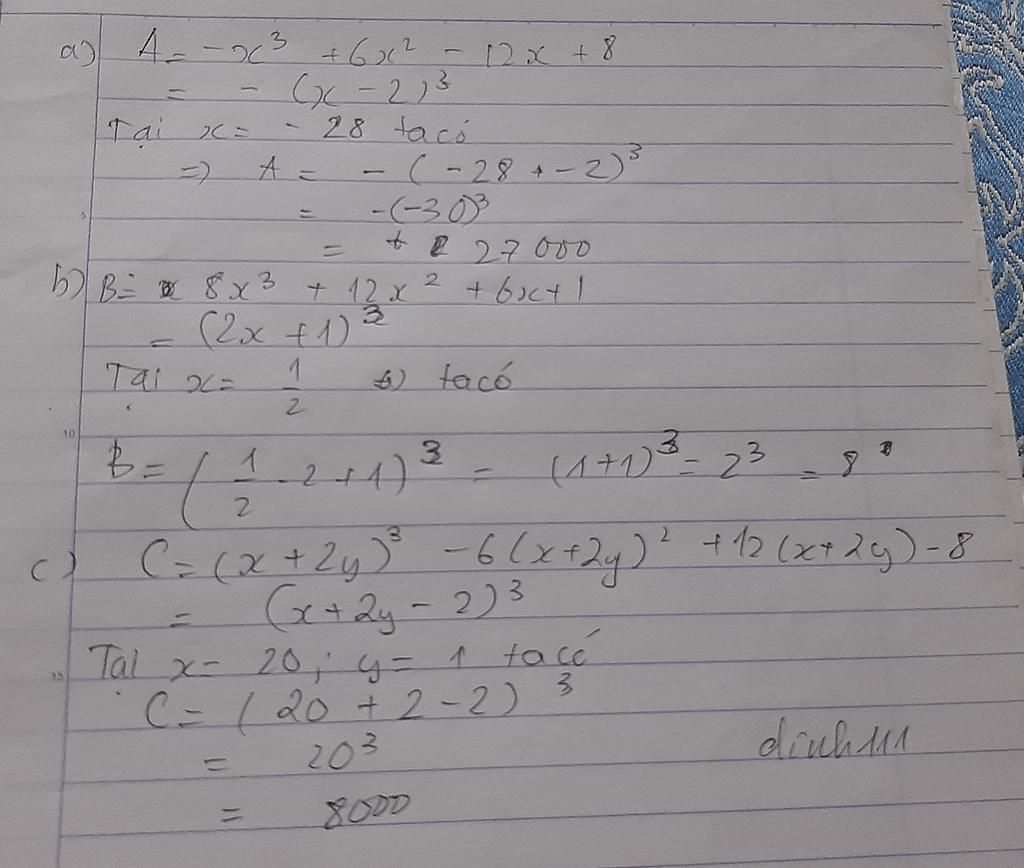 a) A = -x³ + 6x² - 12x + 8
= - (x - 2)³
Tại x = - 28 ta có
=> A = - (-28 + -2)³
= -(-30)³
= + 27 000
b) B = 8x³ + 12x² + 6x + 1
= (2x + 1)³
Tại x = 1/2 ta có
B = (1/2 . 2 + 1)³ = (1+1)³ = 2³ = 8
c) C = (x + 2y)³ - 6(x+2y)² + 12(x+2y) - 8
= (x + 2y - 2)³
Tại x = 20; y = 1 ta có
C = (20 + 2 - 2)³
= 20³
dinh111
= 8000
5
10
15